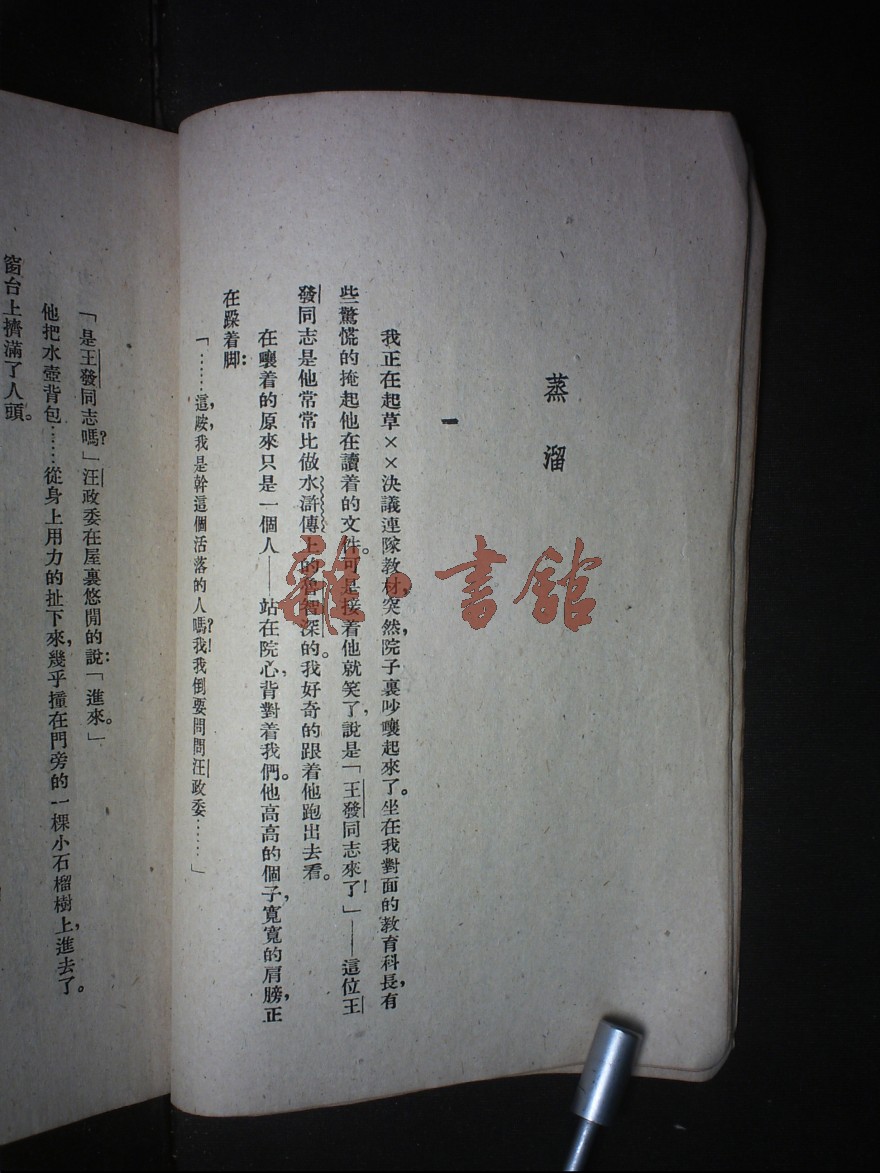 蒸溜
一
我正在起草××決議連隊教材,突然,院子裏吵嚷起來了。坐在我對面的教育科長,有
些驚慌的掩起他在讀着的文件。可是接着他就笑了,說是「王發同志來了!」——這位王
發同志是他常常比做水滸傳上的魯智深的。我好奇的跟着他跑出去看。
在嚷着的原來只是一個人——站在院心,背對着我們。他高高的個子,寬寬的肩膀,正
在跺着脚:
「……這,唉,我是幹這個活落的人嗎?我!我倒要問問汪政委……」
「是王發同志嗎?」汪政委在屋裏悠閒的說:「進來。」
他把水壺背包……從身上用力的扯下來,幾乎撞在門旁的一棵小石榴樹上,進去了。
窗台上擠滿了人頭。
書館